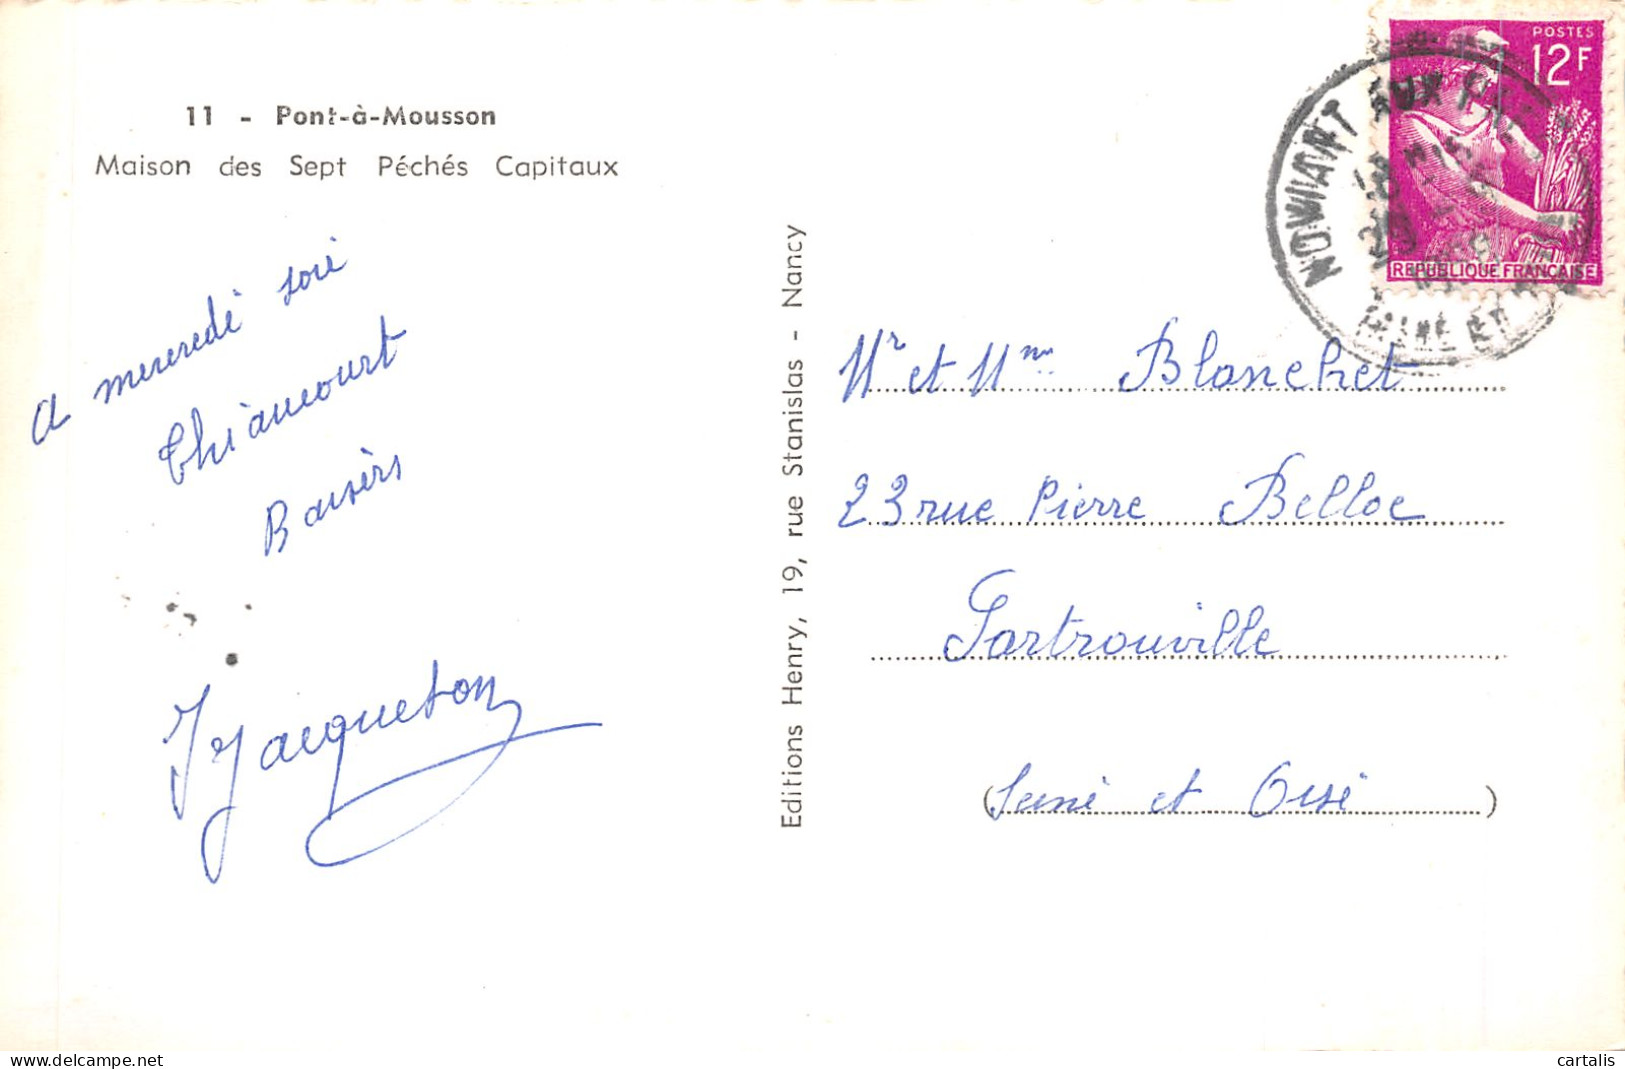 11 - Pont-à-Mousson
Maison des Sept Péchés Capitaux
a meucredi soir
Thiaucourt
Baisers
Jacqueton
Editions Henry, 19, rue Stanislas - Nancy
POSTES
12F
REPUBLIQUE FRANÇAISE
NOVIANT AUX PRES
MEURTHE ET
Mr et Mme Blanchet
23 rue Pierre Belloc
Sartrouville
(Seine et Oise)
cartalis